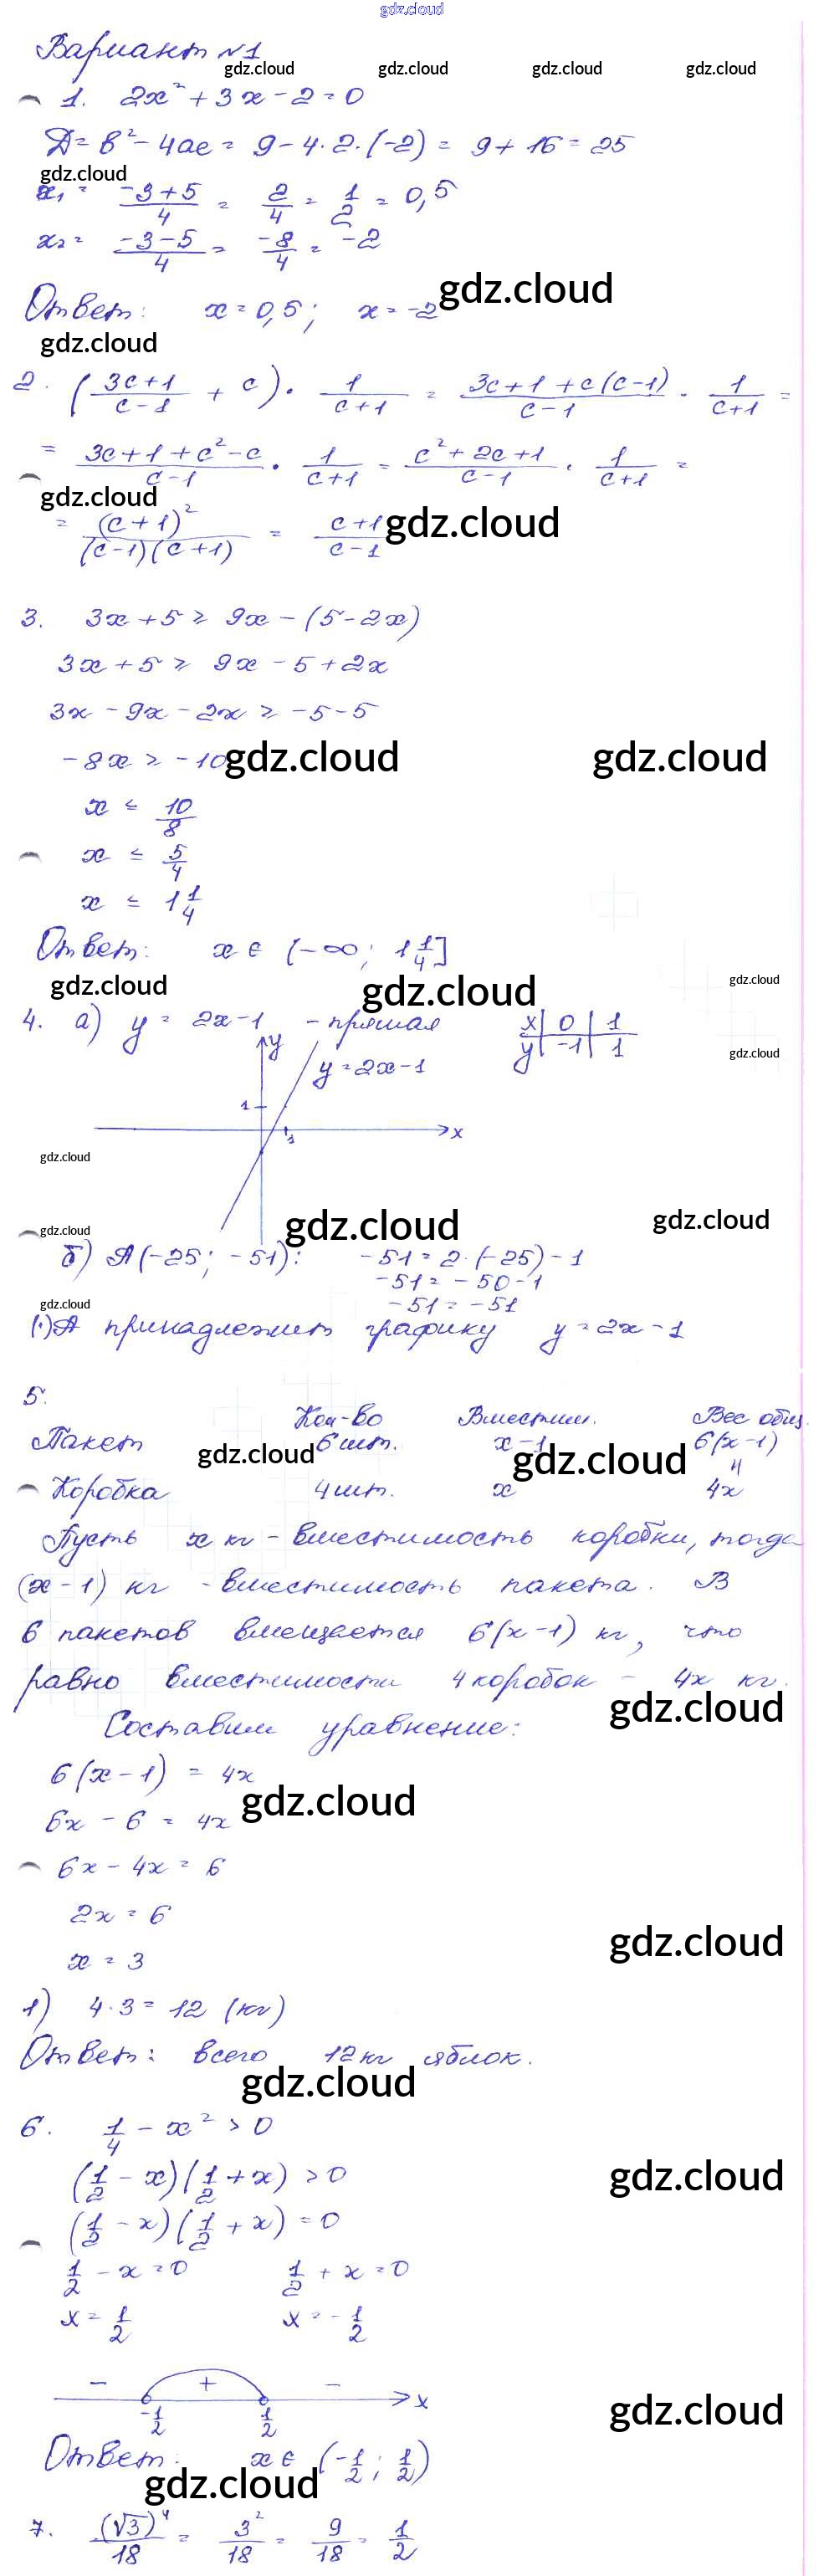 gdz.cloud
Вариант №1
gdz.cloud gdz.cloud gdz.cloud gdz.cloud
1. 2x² + 3x - 2 = 0
D = b² - 4ac = 9 - 4·2·(-2) = 9 + 16 = 25
gdz.cloud
x₁ = (-3+5)/4 = 2/4 = 1/2 = 0,5
x₂ = (-3-5)/4 = -8/4 = -2
Ответ: x = 0,5; x = -2
gdz.cloud
gdz.cloud
2. ((3c+1)/(c-1) + c) · 1/(c+1) = (3c+1+c(c-1))/(c-1) · 1/(c+1) =
= (3c+1+c²-c)/(c-1) · 1/(c+1) = (c²+2c+1)/(c-1) · 1/(c+1) =
gdz.cloud
= (c+1)²/((c-1)(c+1)) = (c+1)/(c-1)
gdz.cloud
3. 3x + 5 ≥ 9x - (5 - 2x)
3x + 5 ≥ 9x - 5 + 2x
3x - 9x - 2x ≥ -5 - 5
-8x ≥ -10
gdz.cloud gdz.cloud
x ≤ 10/8
x ≤ 5/4
x ≤ 1 1/4
Ответ: x ∈ (-∞; 1 1/4]
gdz.cloud gdz.cloud gdz.cloud
4. а) y = 2x - 1 - прямая
x 0 1
y -1 1
gdz.cloud
y
y = 2x - 1
1
x
1
gdz.cloud
gdz.cloud gdz.cloud
gdz.cloud
б) A(-25; -51): -51 = 2·(-25) - 1
-51 = -50 - 1
-51 = -51
gdz.cloud
(·)A принадлежит графику y = 2x - 1
5.
Кол-во Вместим. Вес общ.
Пакет 6 шт. x - 1 6(x - 1)
gdz.cloud gdz.cloud
Коробка 4 шт. x 4x
Пусть x кг - вместимость коробки, тогда
(x - 1) кг - вместимость пакета. В
6 пакетов вмещается 6(x - 1) кг, что
равно вместимости 4 коробок - 4x кг.
gdz.cloud
Составим уравнение:
6(x - 1) = 4x
gdz.cloud
6x - 6 = 4x
6x - 4x = 6
2x = 6
gdz.cloud
x = 3
1) 4·3 = 12 (кг)
Ответ: всего 12 кг яблок.
gdz.cloud
6. 1/4 - x² > 0
(1/2 - x)(1/2 + x) > 0
gdz.cloud
(1/2 - x)(1/2 + x) = 0
1/2 - x = 0 1/2 + x = 0
x = 1/2 x = -1/2
- + -
x
-1/2 1/2
gdz.cloud
Ответ: x ∈ (-1/2; 1/2)
gdz.cloud
7. (√3)⁴/18 = 3²/18 = 9/18 = 1/2